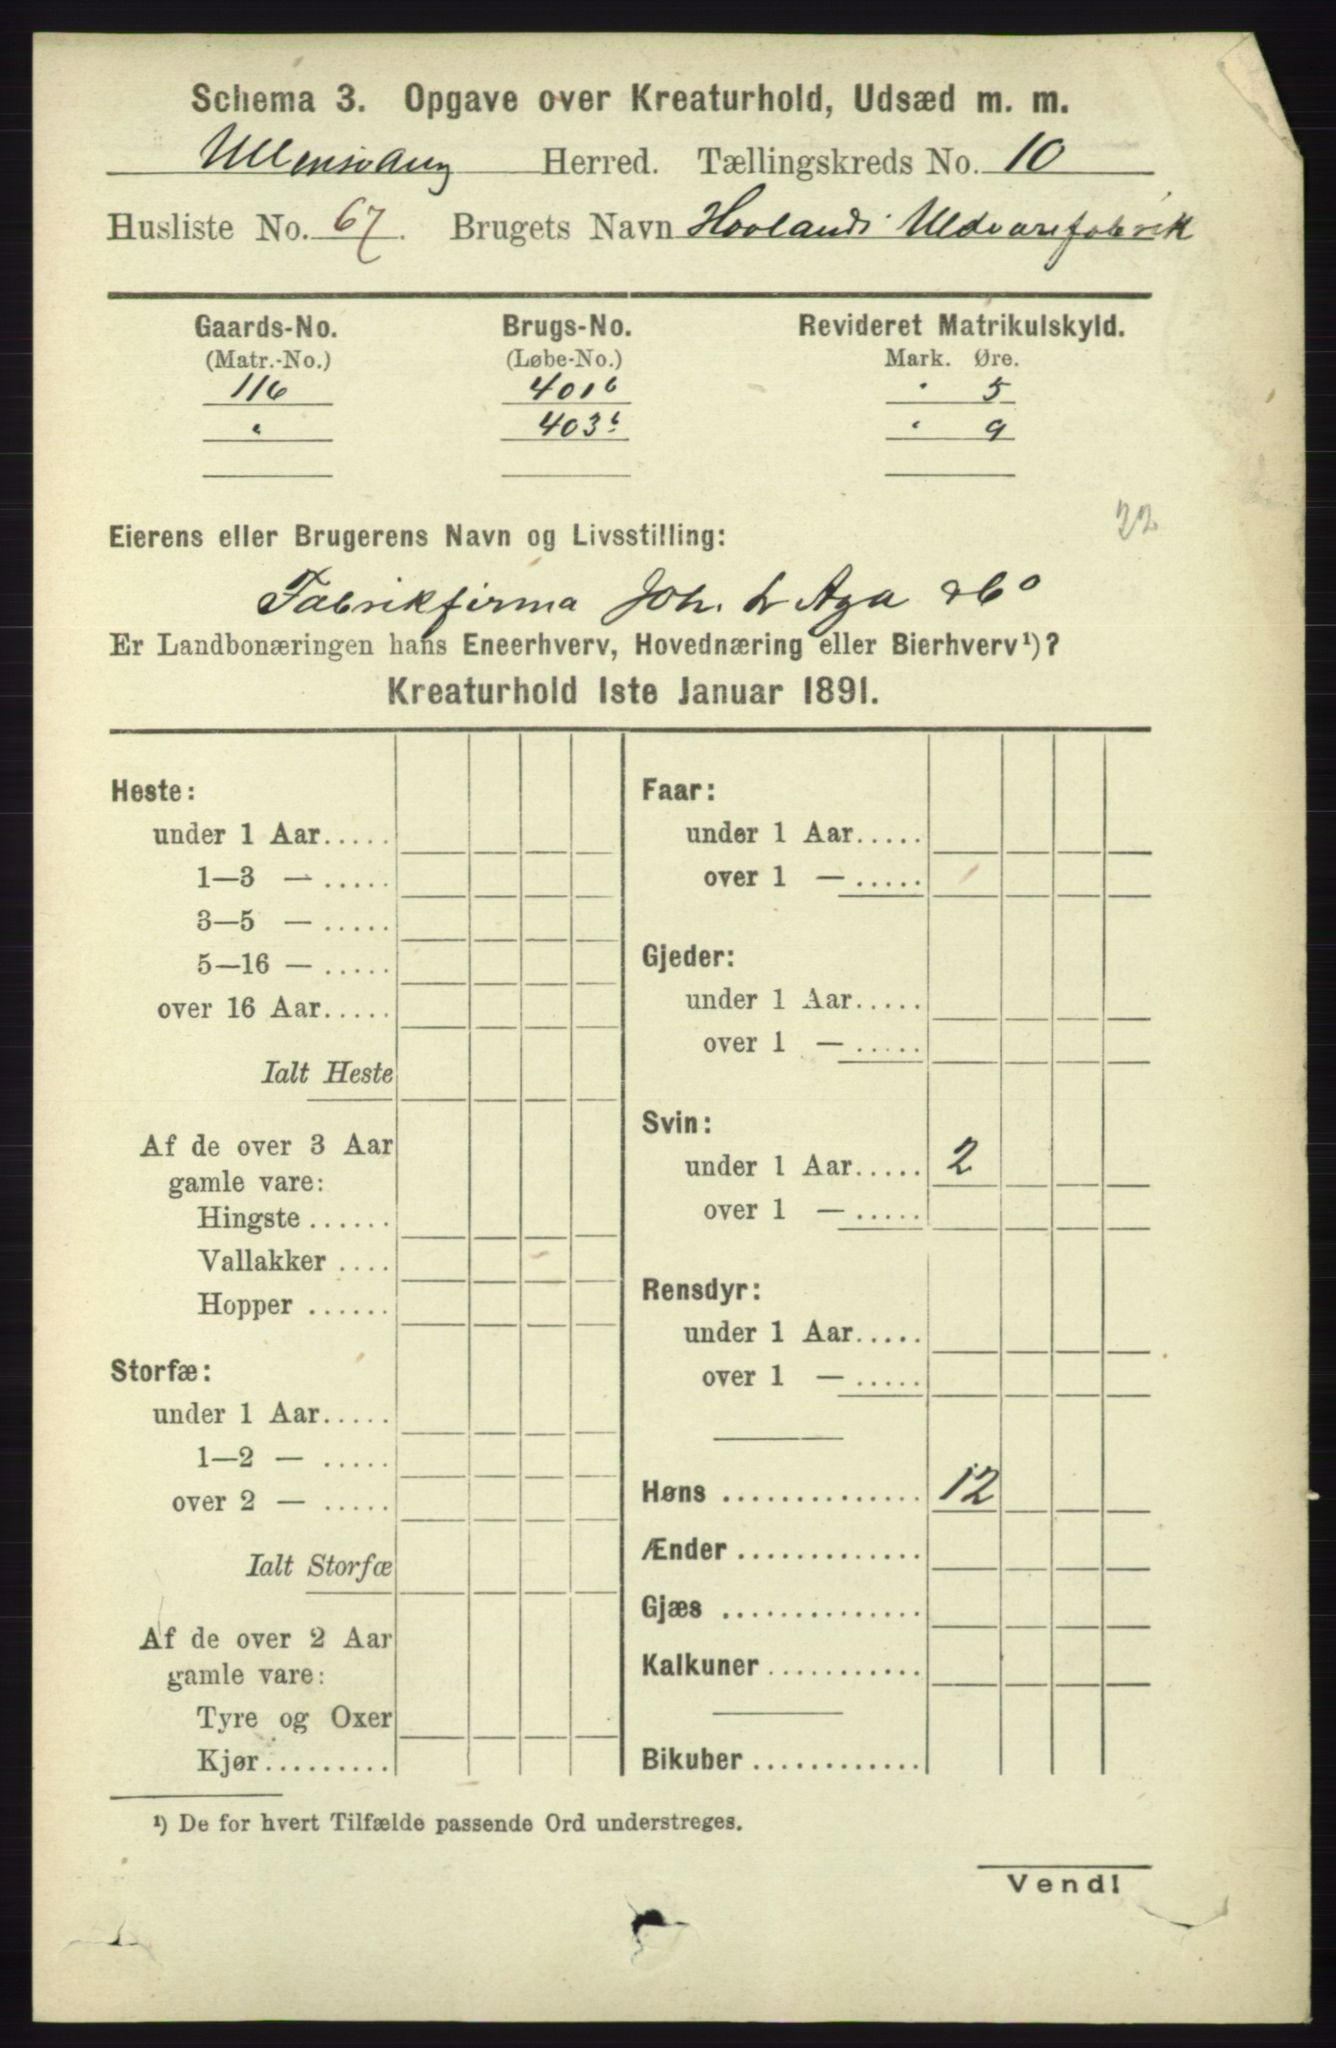 Schema 3. Opgave over Kreaturhold, Udsæd m. m.
Ullensvang Herred. Tællingskreds No. 10
Husliste No. 67. Brugets Navn Hovlands Uldvarefabrik
Gaards-No. Brugs-No. Revideret Matrikulskyld.
(Matr.-No.) (Løbe-No.) Mark. Øre.
116 401b " 5
" 403b " 9
22
Eierens eller Brugerens Navn og Livsstilling:
Fabrikfirma Joh. L Aga & Co
Er Landbonæringen hans Eneerhverv, Hovednæring eller Bierhverv¹)?
Kreaturhold 1ste Januar 1891.
Heste:
under 1 Aar.....
1—3 — .....
3—5 — .....
5—16 — .....
over 16 Aar.....
Ialt Heste
Af de over 3 Aar
gamle vare:
Hingste ......
Vallakker ....
Hopper ......
Storfæ:
under 1 Aar.....
1—2 — .....
over 2 — .....
Ialt Storfæ
Af de over 2 Aar
gamle vare:
Tyre og Oxer
Kjør.........
Faar:
under 1 Aar.....
over 1 — .....
Gjeder:
under 1 Aar.....
over 1 — .....
Svin:
under 1 Aar..... 2
over 1 — .....
Rensdyr:
under 1 Aar.....
over 1 — .....
Høns .............. 12
Ænder .............
Gjæs ..............
Kalkuner ...........
Bikuber ............
¹) De for hvert Tilfælde passende Ord understreges.
Vend!